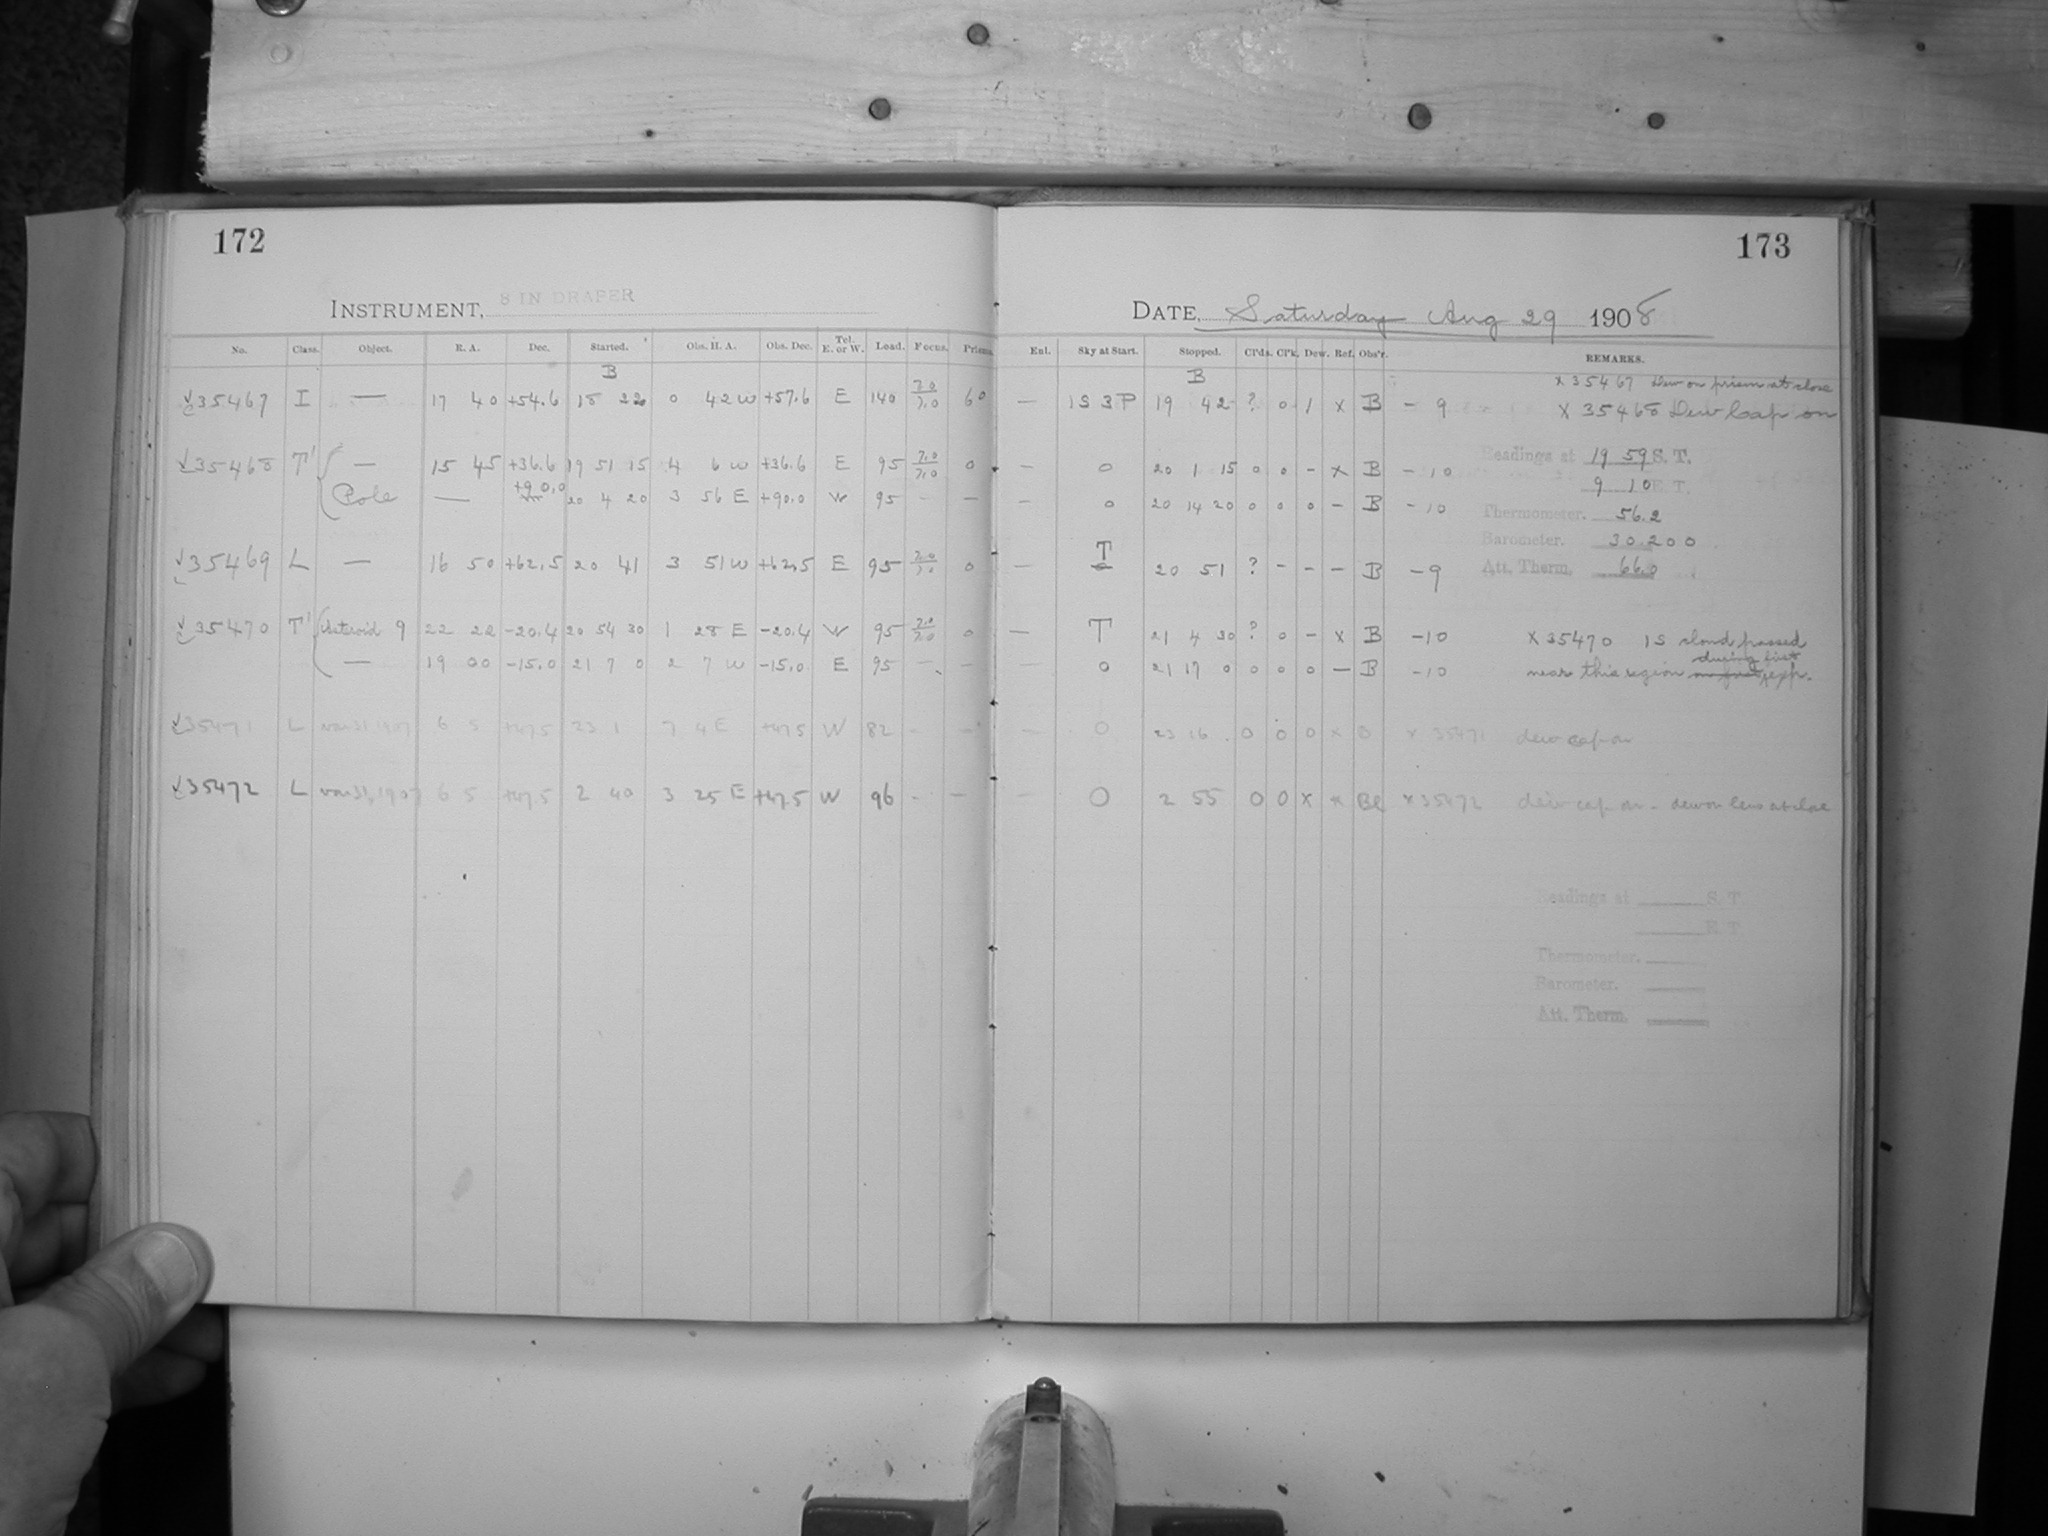 172
173
INSTRUMENT, 8 IN DRAPER
DATE, Saturday Aug 29 1908
No. Class. Object. R. A. Dec. Started. Obs. H. A. Obs. Dec. Tel. E. or W. Lead. Focus. Prisms. Enl. Sky at Start. Stopped. Cl'ds. Cl'k. Dew. Ref. Obs'r. REMARKS.
B B
35467 I — 17 40 +54.6 18 22 0 42 W +57.6 E 140 7.0/7.0 60 — 1S 3P 19 42 ? 0 1 x B - 9 x 35467 Dew on prism at close
x 35468 Dew Cap on
35468 T' — 15 45 +36.6 19 51 15 4 6 W +36.6 E 95 7.0/7.0 0 — 0 20 1 15 0 0 - x B - 10 Readings at 19 59 S. T.
9 10 E. T.
Pole — +90.0 20 4 20 3 56 E +90.0 W 95 — — — 0 20 14 20 0 0 0 - B - 10 Thermometer. 56.2
Barometer. 30.200
35469 L — 16 50 +62.5 20 41 3 51 W +62.5 E 95 7.0/7.0 0 — T 20 51 ? - - - B - 9 Att. Therm. 66.0
35470 T' Asteroid 9 22 22 -20.4 20 54 30 1 28 E -20.4 W 95 7.0/7.0 0 — T 21 4 30 ? 0 - x B -10 x 35470 1S cloud passed
— 19 00 -15.0 21 7 0 2 7 W -15.0 E 95 — — — 0 21 17 0 0 0 0 — B -10 near this region during first exp.
35471 L 6 5 +47.5 23 1 7 4 E +47.5 W 82 - - — 0 23 16 0 0 0 x B x 35471 dew cap on
35472 L 6 5 +47.5 2 40 3 25 E +47.5 W 96 - — — 0 2 55 0 0 x x Bl x 35472 dew cap on - dew on lens at close
Readings at S. T.
E. T.
Thermometer.
Barometer.
Att. Therm.